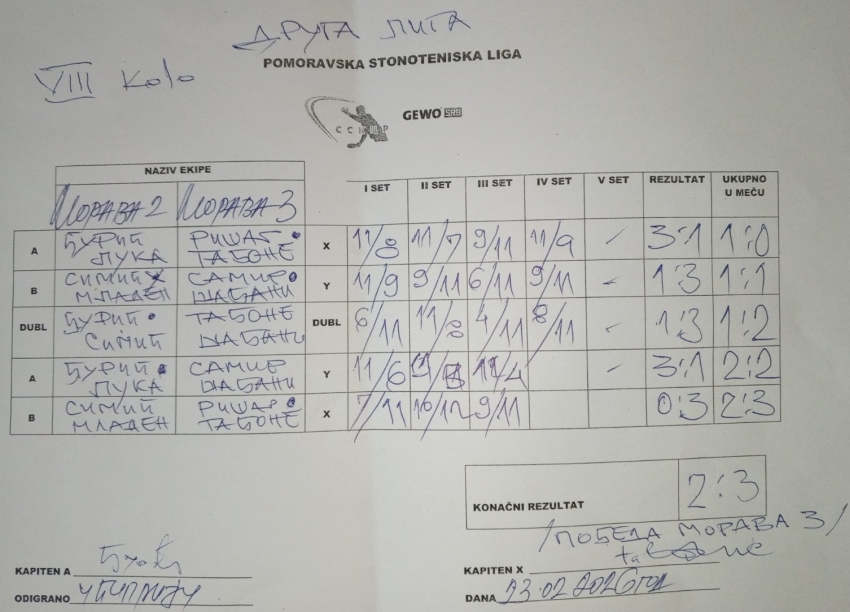 ДРУГА ЛИГА
POMORAVSKA STONOTENISKA LIGA
VIII Kolo
GEWO SRB
NAZIV EKIPE I SET II SET III SET IV SET V SET REZULTAT UKUPNO U MEČU
МОРАВА 2 МОРАВА 3
A ЂУРИЋ ЛУКА РИШАР ТАБОНЕ X 11/8 11/7 9/11 11/9 - 3:1 1:0
B СИМИЋ МЛАДЕН САМИР ШАБАНИ Y 11/9 9/11 6/11 9/11 - 1:3 1:1
DUBL ЂУРИЋ СИМИЋ ТАБОНЕ ШАБАНИ DUBL 6/11 11/8 4/11 8/11 - 1:3 1:2
A ЂУРИЋ ЛУКА САМИР ШАБАНИ Y 11/6 11/4 3:1 2:2
B СИМИЋ МЛАДЕН РИШАР ТАБОНЕ X 7/11 10/12 9/11 0:3 2:3
KONAČNI REZULTAT 2:3
/ПОБЕДА МОРАВА 3/
KAPITEN A
KAPITEN X
ODIGRANO
DANA 23.02.2026